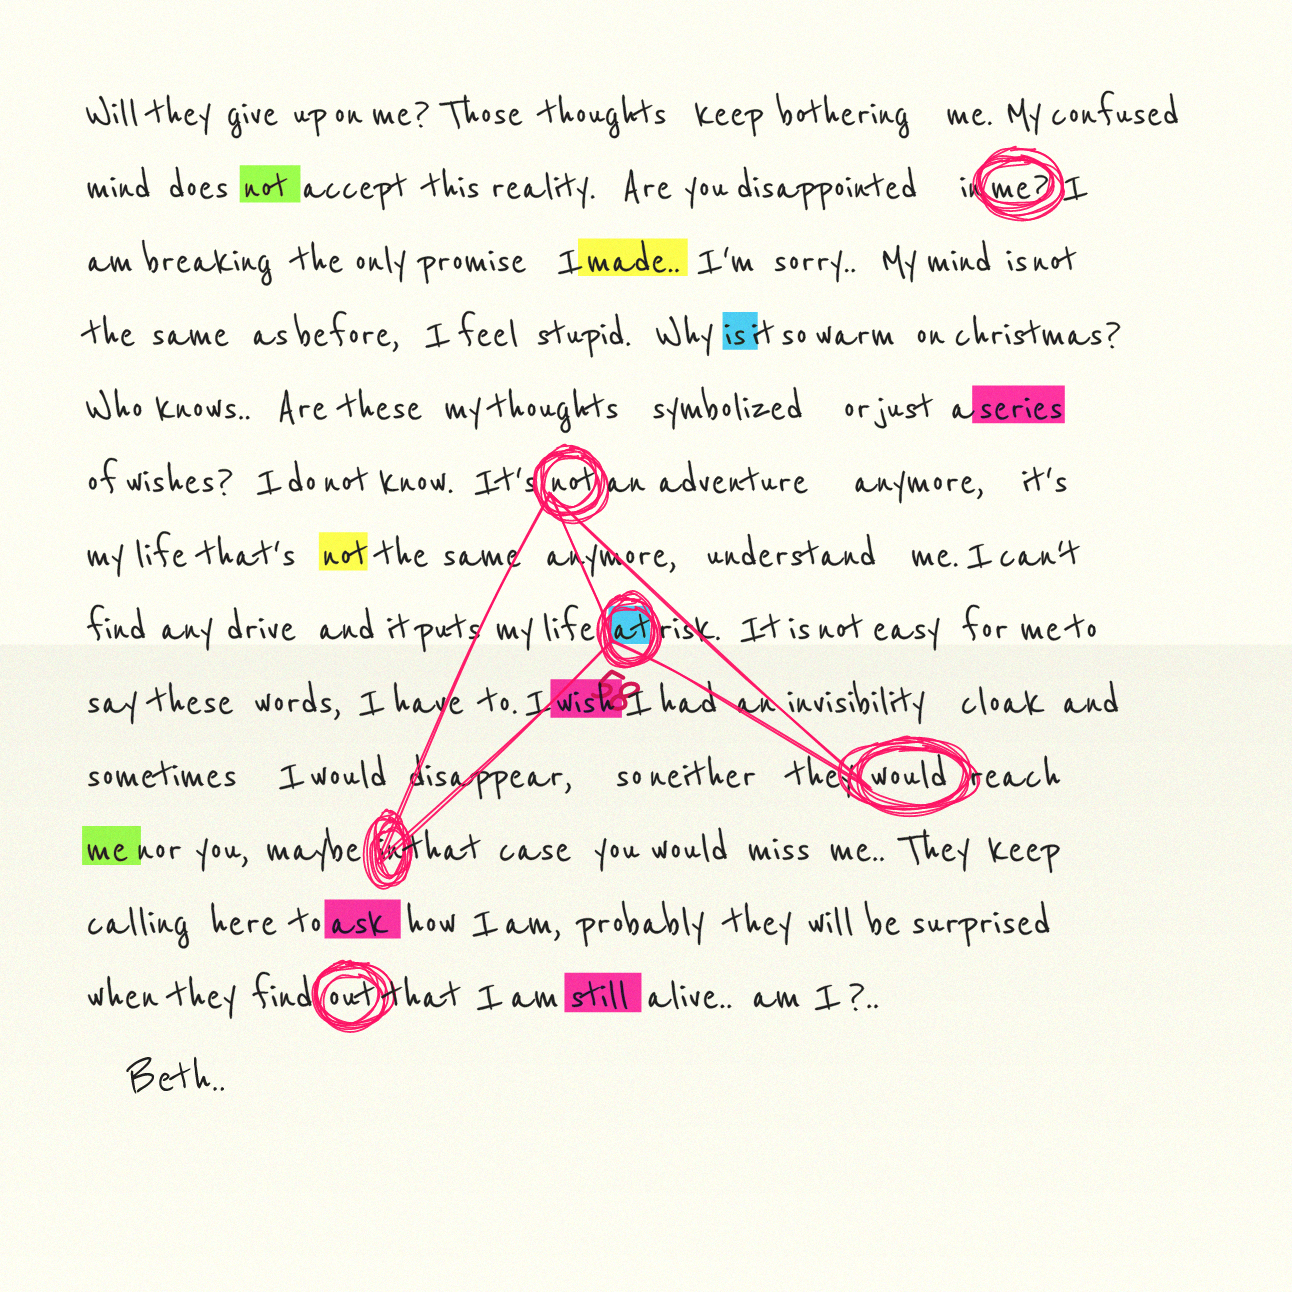 Will they give up on me? Those thoughts keep bothering me. My confused
mind does not accept this reality. Are you disappointed in me? I
am breaking the only promise I made.. I'm sorry.. My mind is not
the same as before, I feel stupid. Why is it so warm on christmas?
Who knows.. Are these my thoughts symbolized or just a series
of wishes? I do not know. It's not an adventure anymore, it's
my life that's not the same anymore, understand me. I can't
find any drive and it puts my life at risk. It is not easy for me to
say these words, I have to. I wish I had an invisibility cloak and
sometimes I would disappear, so neither they would reach
me nor you, maybe in that case you would miss me.. They keep
calling here to ask how I am, probably they will be surprised
when they find out that I am still alive.. am I?..
Beth..